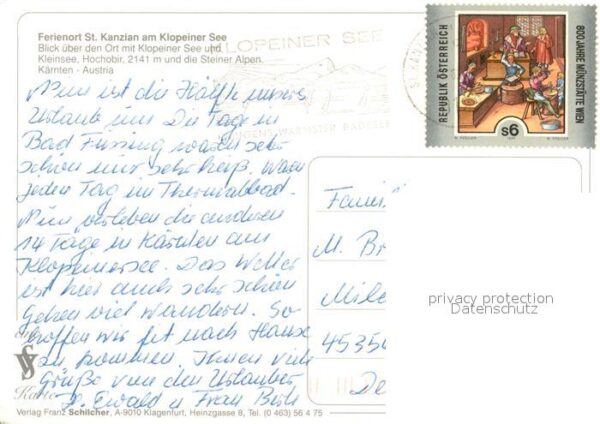 Ferienort St. Kanzian am Klopeiner See
Blick über den Ort mit Klopeiner See und
Kleinsee, Hochobir, 2141 m und die Steiner Alpen.
Kärnten - Austria
KLOPEINER SEE
WARMSTER BADESEE
REPUBLIK ÖSTERREICH
800 JAHRE MÜNZSTÄTTE WIEN
s6
Nun ist die Hälfte unseres
Urlaubs um Die Tage in
Bad Füssing waren sehr
schön nur sehr heiß. Waren
jeden Tag im Thermalbad.
Nun verleben die anderen
14 Tage in Kärnten am
Klopeinersee. Das Wetter
ist hier auch sehr schön
gehen viel wandern. So
hoffen wir fit nach Hause
zu kommen. Ihnen viele
Grüße von den Urlauber
H. Ewald u Frau
Famil
M. Br
45356
De
privacy protection
Datenschutz
Eine
VS
Karte
Verlag Franz Schilcher, A-9010 Klagenfurt, Heinzgasse 8, Tel. (0 463) 56 4 75